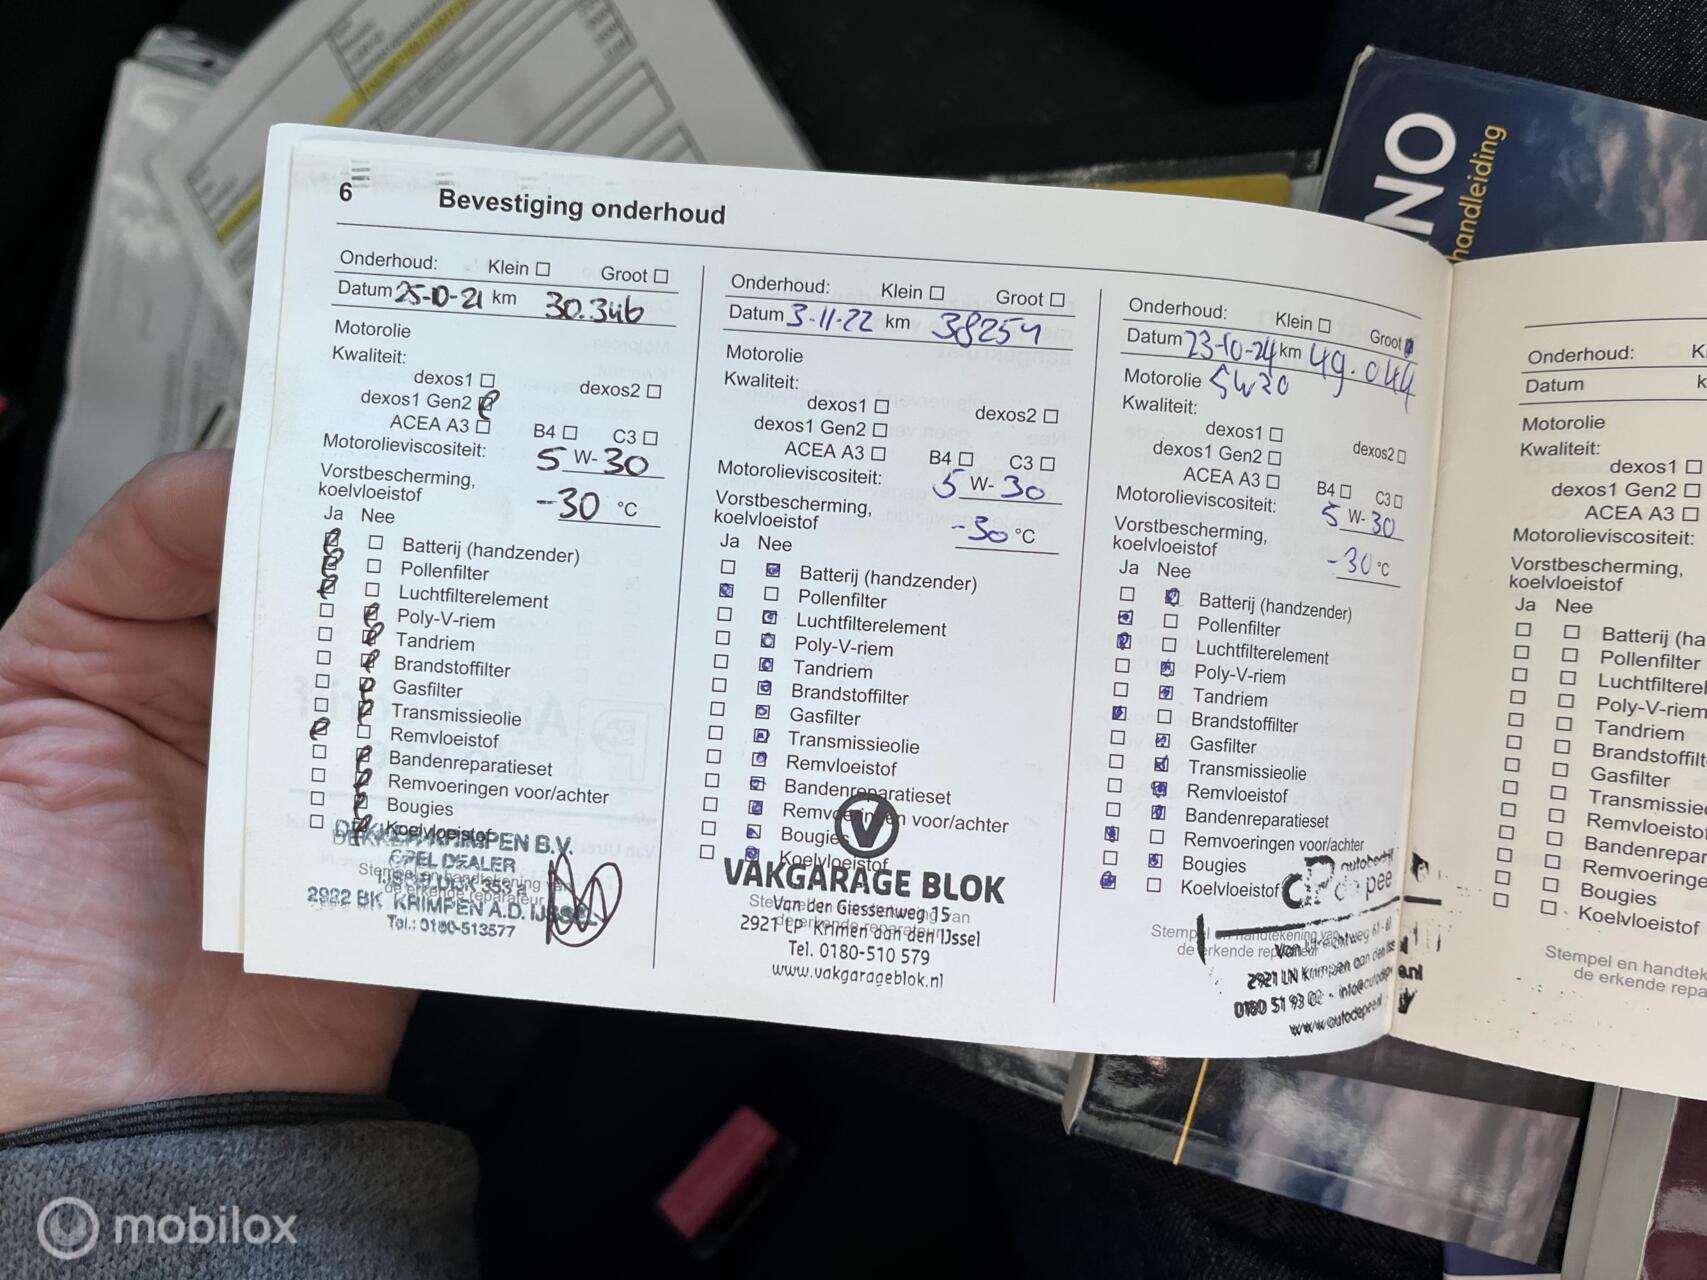 6 Bevestiging onderhoud
Onderhoud: Klein Groot
Datum 25-10-21 km 30.346
Motorolie
Kwaliteit:
dexos1 dexos2
dexos1 Gen2
ACEA A3 B4 C3
Motorolieviscositeit: 5 W- 30
Vorstbescherming,
koelvloeistof -30 °C
Ja Nee
Batterij (handzender)
Pollenfilter
Luchtfilterelement
Poly-V-riem
Tandriem
Brandstoffilter
Gasfilter
Transmissieolie
Remvloeistof
Bandenreparatieset
Remvoeringen voor/achter
Bougies
Koelvloeistof
DEKKER KRIMPEN B.V.
OPEL DEALER
Stempel en handtekening van
de erkende reparateur
2922 BK KRIMPEN A.D. IJSSEL
Tel.: 0180-513577
Onderhoud: Klein Groot
Datum 3-11-22 km 38254
Motorolie
Kwaliteit:
dexos1 dexos2
dexos1 Gen2
ACEA A3 B4 C3
Motorolieviscositeit: 5 W- 30
Vorstbescherming,
koelvloeistof -30 °C
Ja Nee
Batterij (handzender)
Pollenfilter
Luchtfilterelement
Poly-V-riem
Tandriem
Brandstoffilter
Gasfilter
Transmissieolie
Remvloeistof
Bandenreparatieset
Remvoeringen voor/achter
Bougies
Koelvloeistof
V
VAKGARAGE BLOK
Van der Giessenweg 15
Stempel en handtekening van
de erkende reparateur
2921 LP Krimpen aan den IJssel
Tel. 0180-510 579
www.vakgarageblok.nl
Onderhoud: Klein Groot
Datum 23-10-24 km 49.044
Motorolie 5W30
Kwaliteit:
dexos1 dexos2
dexos1 Gen2
ACEA A3 B4 C3
Motorolieviscositeit: 5 W- 30
Vorstbescherming,
koelvloeistof -30 °C
Ja Nee
Batterij (handzender)
Pollenfilter
Luchtfilterelement
Poly-V-riem
Tandriem
Brandstoffilter
Gasfilter
Transmissieolie
Remvloeistof
Bandenreparatieset
Remvoeringen voor/achter
Bougies
Koelvloeistof
autobedrijf
de pee
Stempel en handtekening van
de erkende reparateur
2921 LN Krimpen aan den
0180 51 93 02 - info@autodepee.nl
www.autodepee.nl
Onderhoud: K
Datum k
Motorolie
Kwaliteit:
dexos1
dexos1 Gen2
ACEA A3
Motorolieviscositeit:
Vorstbescherming,
koelvloeistof
Ja Nee
Batterij (ha
Pollenfilter
Luchtfilterel
Poly-V-riem
Tandriem
Brandstoffilt
Gasfilter
Transmissie
Remvloeisto
Bandenrepar
Remvoeringe
Bougies
Koelvloeistof
Stempel en handtek
de erkende repa
NO
handleiding
mobilox